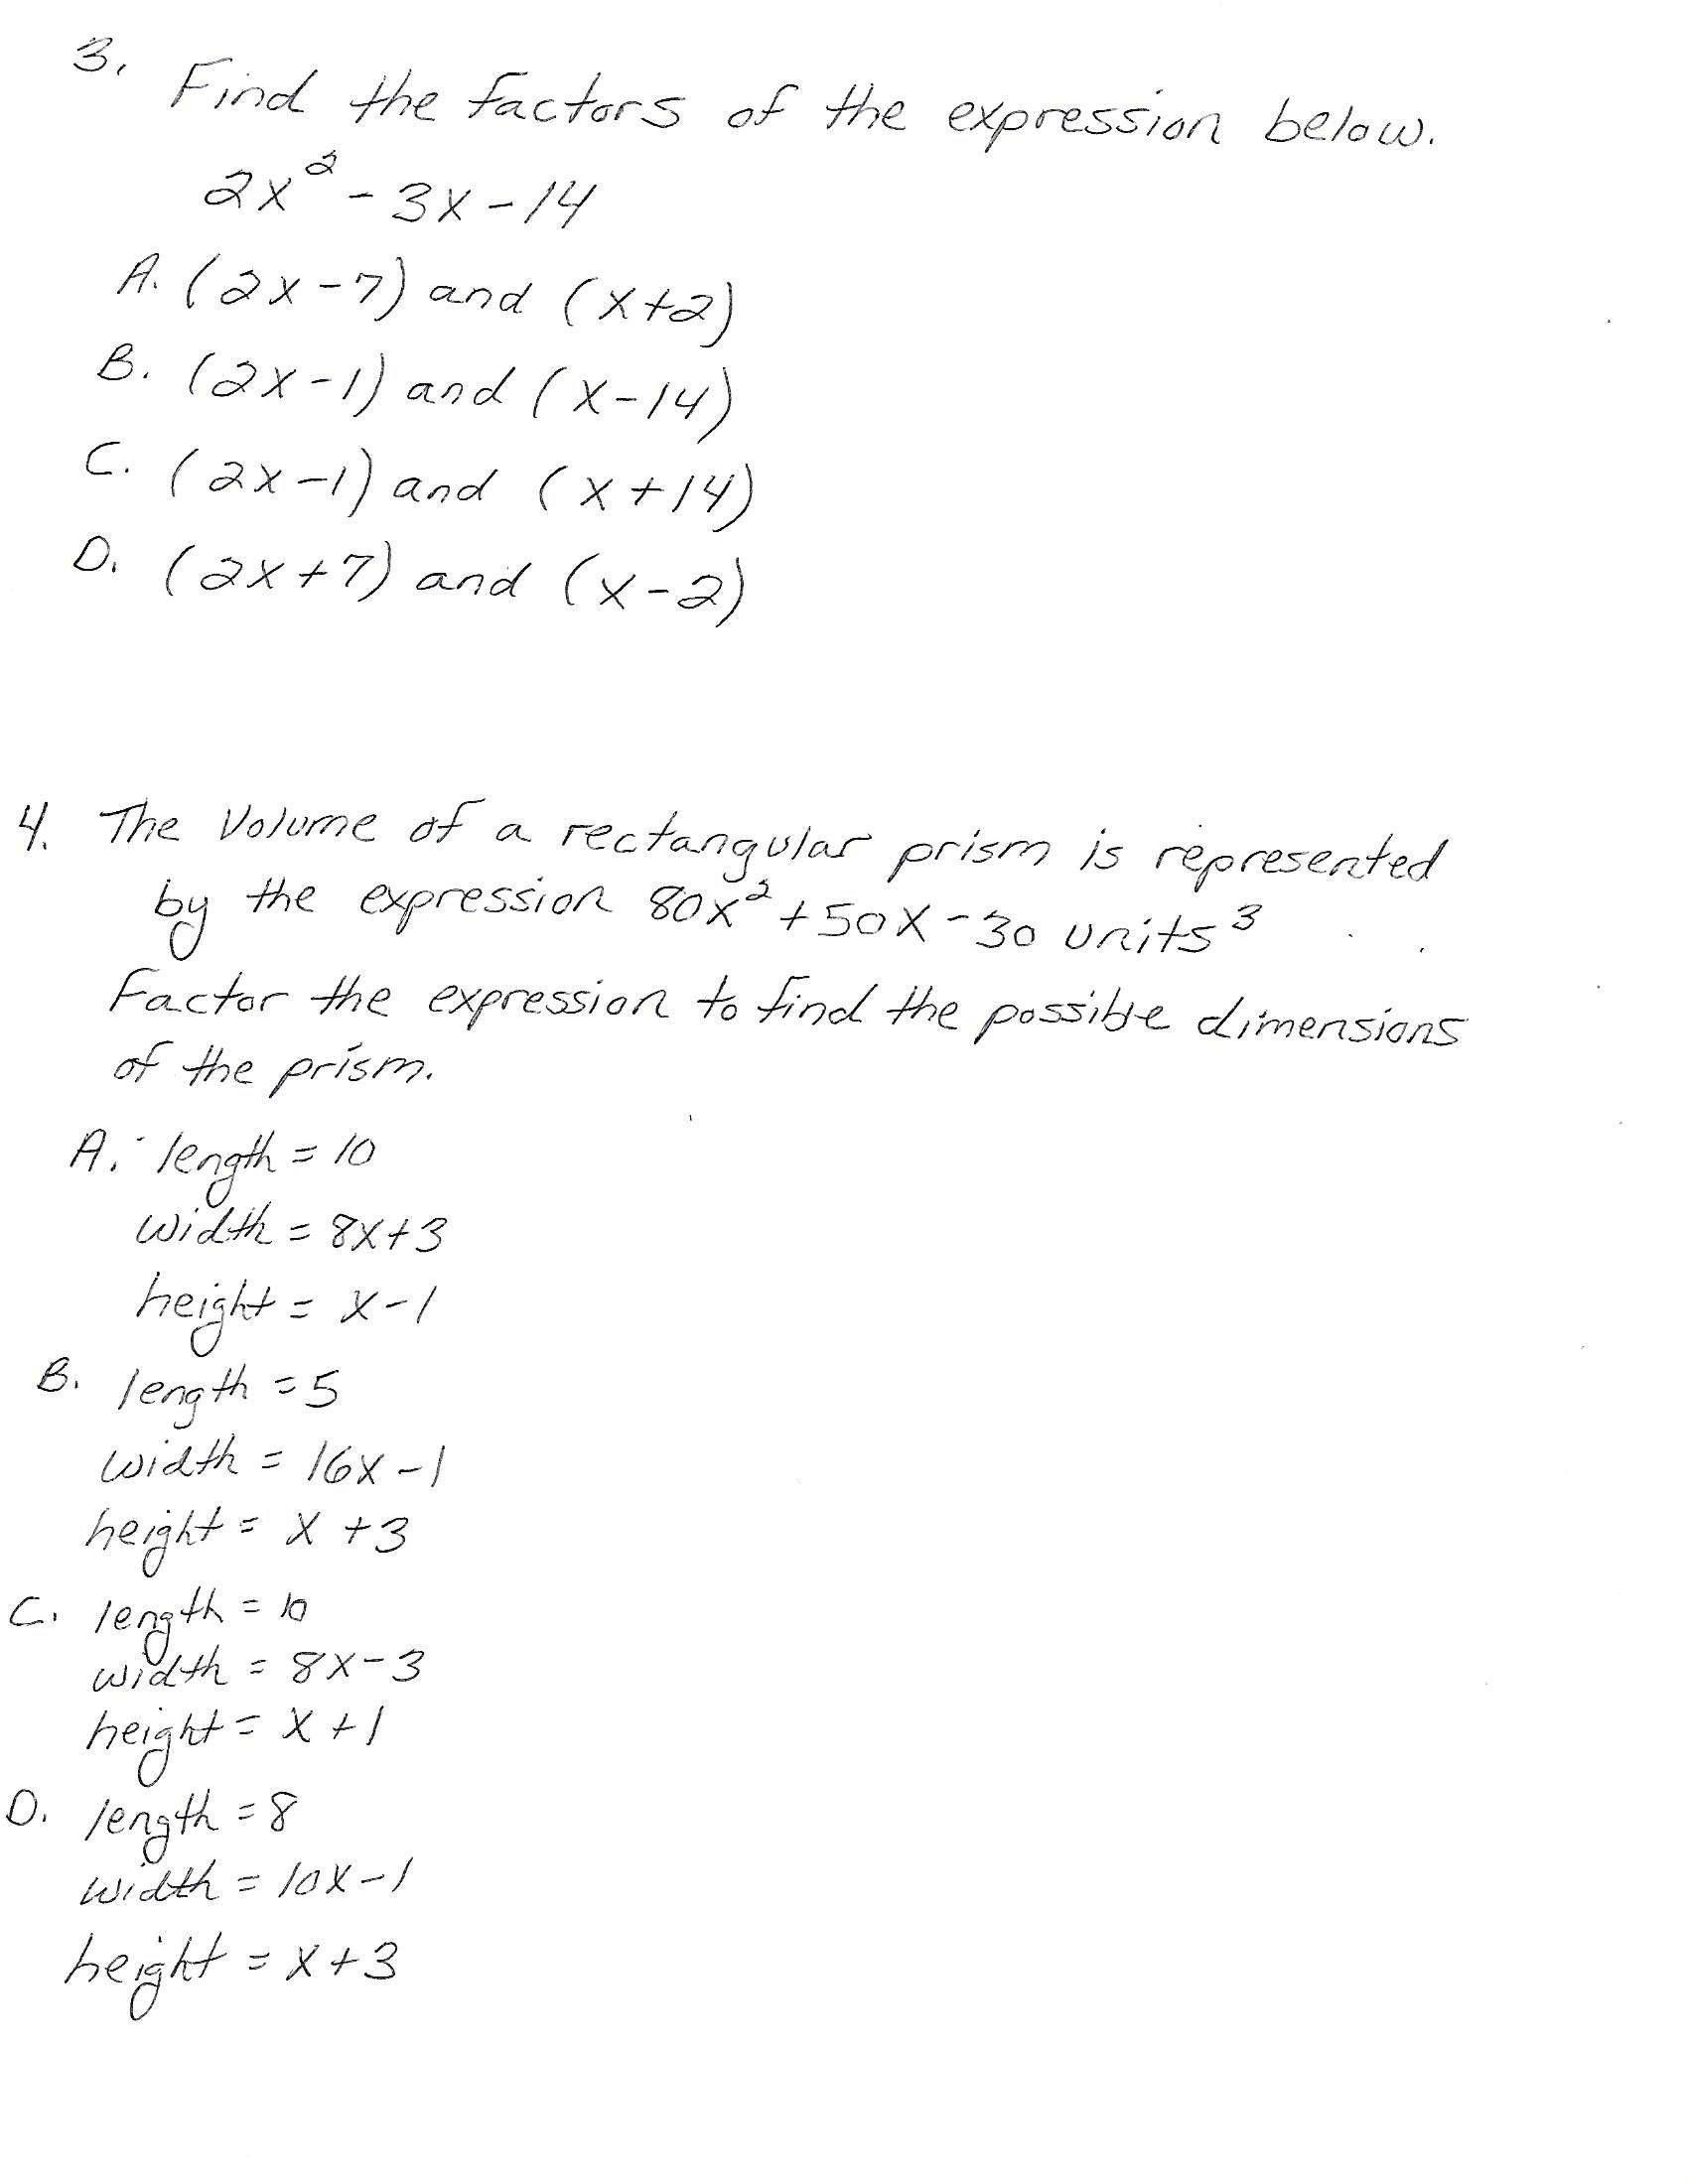 3. Find the factors of the expression below.
2x² - 3x - 14
A. (2x - 7) and (x + 2)
B. (2x - 1) and (x - 14)
C. (2x - 1) and (x + 14)
D. (2x + 7) and (x - 2)
4. The Volume of a rectangular prism is represented
by the expression 80x² + 50x - 30 units³
Factor the expression to find the possible dimensions
of the prism.
A. length = 10
width = 8x + 3
height = x - 1
B. length = 5
width = 16x - 1
height = x + 3
C. length = 10
width = 8x - 3
height = x + 1
D. length = 8
width = 10x - 1
height = x + 3